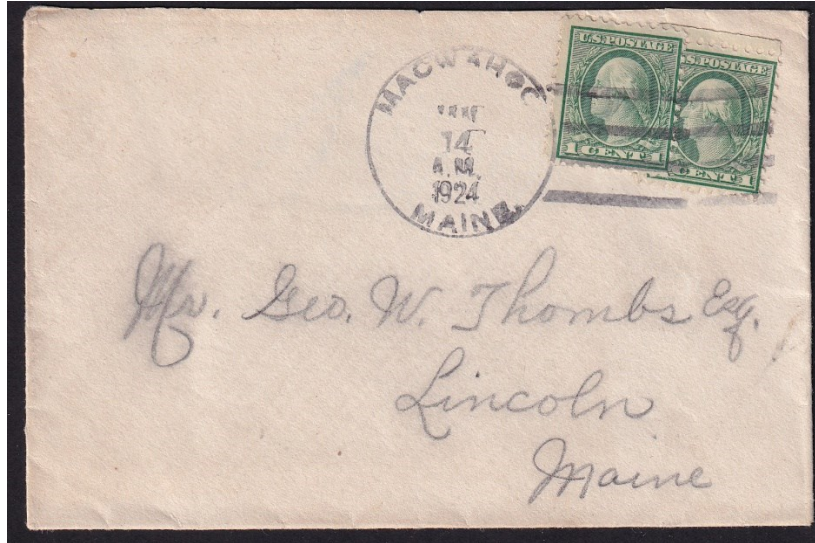 MACWAHOC
JAN
14
A.M.
1924
MAINE.
U.S. POSTAGE
1 CENT 1
U.S. POSTAGE
CENT 1
Mr. Geo. W. Thombs Esq.
Lincoln
Maine